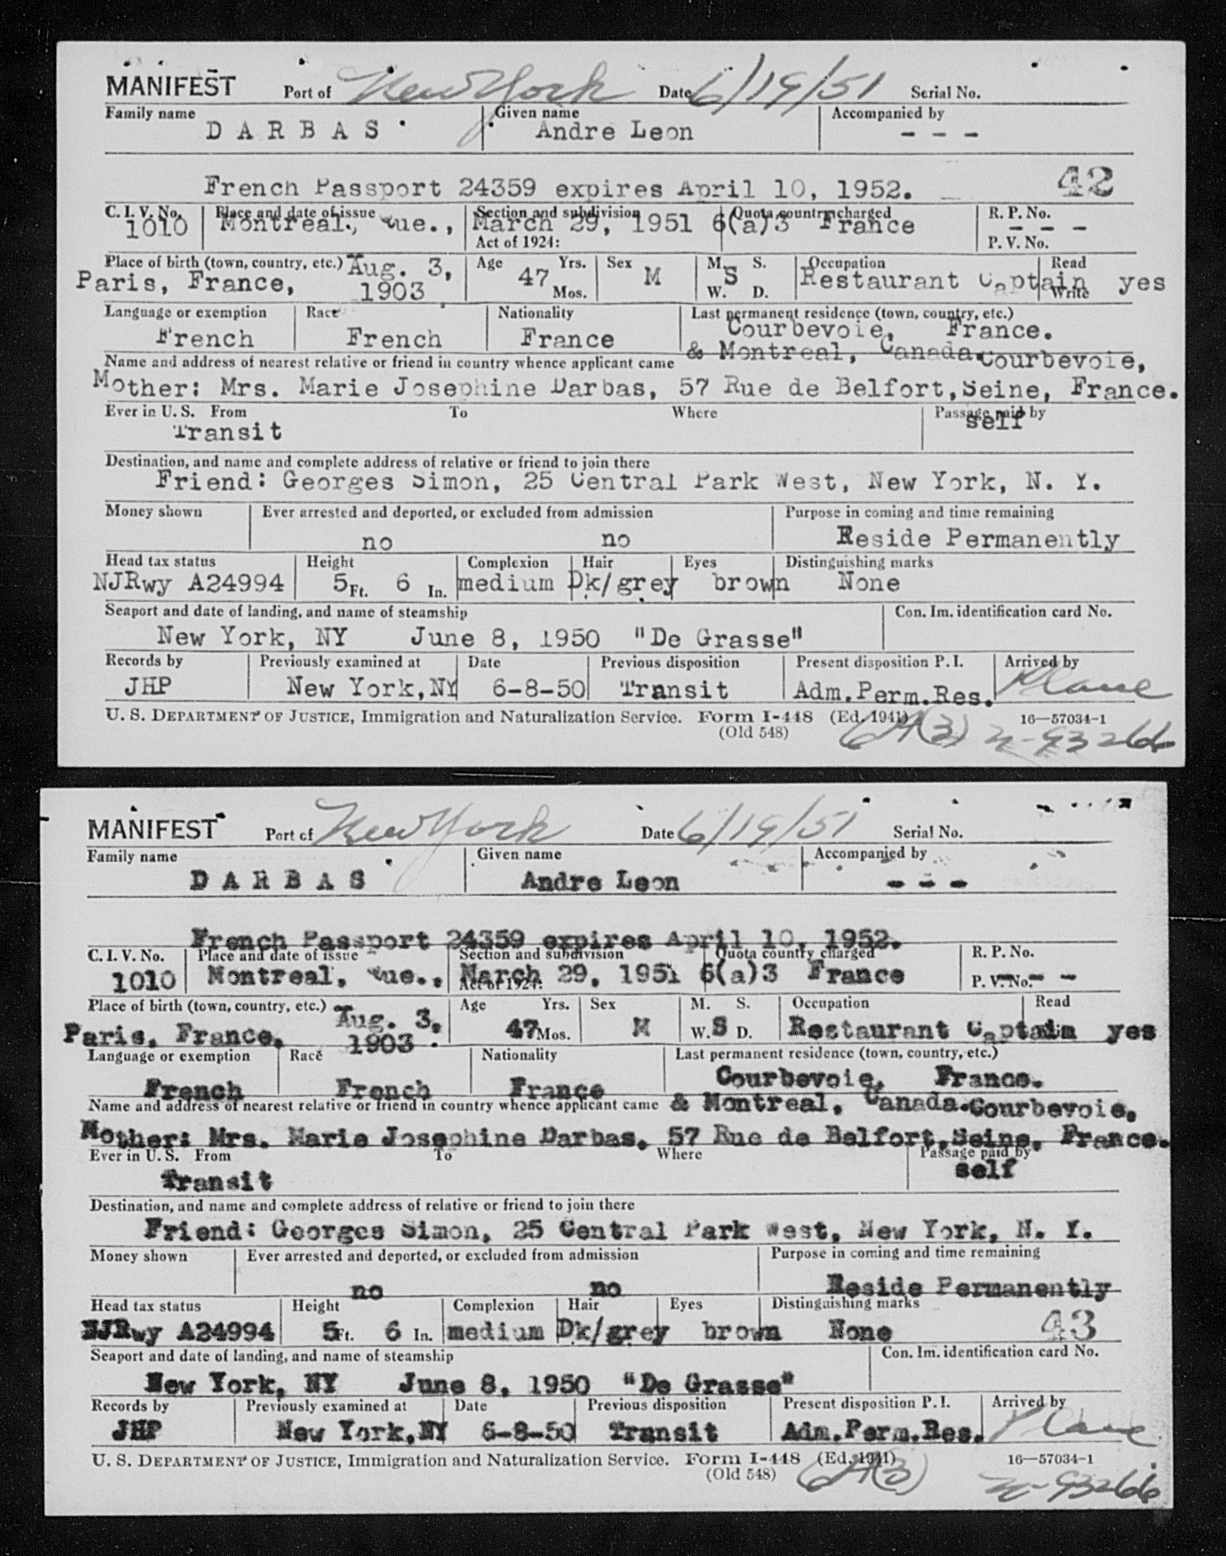 MANIFEST Port of New York Date 6/19/51 Serial No.
Family name Given name Accompanied by
D A R B A S Andre Leon - - -
French Passport 24359 expires April 10, 1952. 42
C. I. V. No. Place and date of issue Section and subdivision Quota country charged R. P. No.
1010 Montreal, Que., March 29, 1951 6(a)3 France - - -
Act of 1924: P. V. No.
Place of birth (town, country, etc.) Aug. 3, Age Yrs. Sex M. S. Occupation Read
Paris, France, 1903 47 Mos. M S W. D. Restaurant Captain Write yes
Language or exemption Race Nationality Last permanent residence (town, country, etc.)
French French France Courbevoie, France.
& Montreal, Canada.
Name and address of nearest relative or friend in country whence applicant came Courbevoie,
Mother: Mrs. Marie Josephine Darbas, 57 Rue de Belfort, Seine, France.
Ever in U. S. From To Where Passage paid by
Transit self
Destination, and name and complete address of relative or friend to join there
Friend: Georges Simon, 25 Central Park West, New York, N. Y.
Money shown Ever arrested and deported, or excluded from admission Purpose in coming and time remaining
no no Reside Permanently
Head tax status Height Complexion Hair Eyes Distinguishing marks
NJRwy A24994 5 Ft. 6 In. medium Dk/grey brown None
Seaport and date of landing, and name of steamship Con. Im. identification card No.
New York, NY June 8, 1950 "De Grasse"
Records by Previously examined at Date Previous disposition Present disposition P. I. Arrived by
JHP New York,NY 6-8-50 Transit Adm.Perm.Res. Plane
U. S. DEPARTMENT OF JUSTICE, Immigration and Naturalization Service. Form I-448 (Ed. 1941) 16—57034-1
(Old 548)
MANIFEST Port of New York Date 6/19/51 Serial No.
Family name Given name Accompanied by
D A R B A S Andre Leon - - -
French Passport 24359 expires April 10, 1952.
C. I. V. No. Place and date of issue Section and subdivision Quota country charged R. P. No.
1010 Montreal, Que., March 29, 1951 6(a)3 France - - -
Act of 1924: P. V. No.
Place of birth (town, country, etc.) Aug. 3, Age Yrs. Sex M. S. Occupation Read
Paris, France, 1903 47 Mos. M W. S D. Restaurant Captain yes
Language or exemption Race Nationality Last permanent residence (town, country, etc.)
French French France Courbevoie, France.
Name and address of nearest relative or friend in country whence applicant came & Montreal, Canada. Courbevoie,
Mother: Mrs. Marie Josephine Darbas, 57 Rue de Belfort, Seine, France.
Ever in U. S. From To Where Passage paid by
Transit self
Destination, and name and complete address of relative or friend to join there
Friend: Georges Simon, 25 Central Park West, New York, N. Y.
Money shown Ever arrested and deported, or excluded from admission Purpose in coming and time remaining
no no Reside Permanently
Head tax status Height Complexion Hair Eyes Distinguishing marks
NJRwy A24994 5 Ft. 6 In. medium Dk/grey brown None 43
Seaport and date of landing, and name of steamship Con. Im. identification card No.
New York, NY June 8, 1950 "De Grasse"
Records by Previously examined at Date Previous disposition Present disposition P. I. Arrived by
JHP New York,NY 6-8-50 Transit Adm.Perm.Res. Plane
U. S. DEPARTMENT OF JUSTICE, Immigration and Naturalization Service. Form I-448 (Ed. 1941) 16—57034-1
(Old 548)